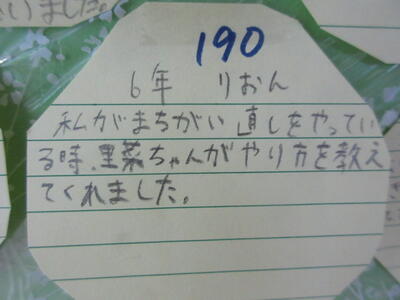 いました。
190
6年 りおん
私がまちがい直しをやってい
る時、里菜ちゃんがやり方を教え
てくれました。